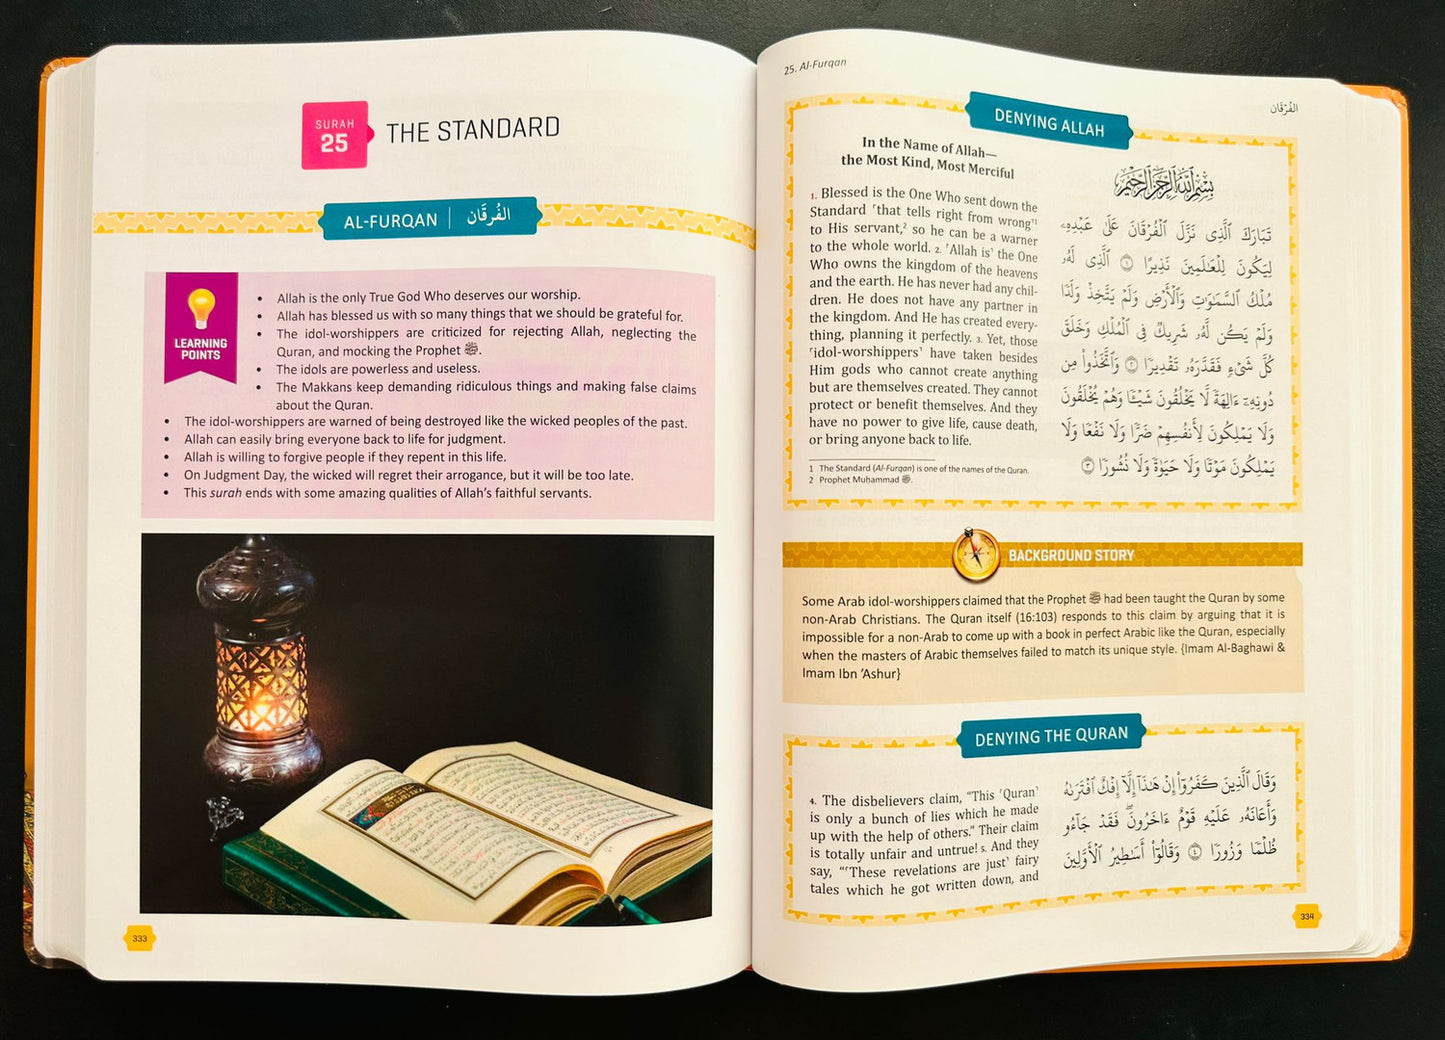 SURAH
25
THE STANDARD
AL-FURQAN | الفُرقَان
LEARNING
POINTS
• Allah is the only True God Who deserves our worship.
• Allah has blessed us with so many things that we should be grateful for.
• The idol-worshippers are criticized for rejecting Allah, neglecting the
Quran, and mocking the Prophet ﷺ.
• The idols are powerless and useless.
• The Makkans keep demanding ridiculous things and making false claims
about the Quran.
• The idol-worshippers are warned of being destroyed like the wicked peoples of the past.
• Allah can easily bring everyone back to life for judgment.
• Allah is willing to forgive people if they repent in this life.
• On Judgment Day, the wicked will regret their arrogance, but it will be too late.
• This surah ends with some amazing qualities of Allah's faithful servants.
333
25. Al-Furqan
الفُرْقَان
DENYING ALLAH
In the Name of Allah—
the Most Kind, Most Merciful
1. Blessed is the One Who sent down the
Standard ˹that tells right from wrong˺¹
to His servant,² so he can be a warner
to the whole world. 2. ˹Allah is˺ the One
Who owns the kingdom of the heavens
and the earth. He has never had any chil-
dren. He does not have any partner in
the kingdom. And He has created every-
thing, planning it perfectly. 3. Yet, those
˹idol-worshippers˺ have taken besides
Him gods who cannot create anything
but are themselves created. They cannot
protect or benefit themselves. And they
have no power to give life, cause death,
or bring anyone back to life.
1 The Standard (Al-Furqan) is one of the names of the Quran.
2 Prophet Muhammad ﷺ.
بِسْمِ ٱللَّهِ ٱلرَّحْمَٰنِ ٱلرَّحِيمِ
تَبَارَكَ ٱلَّذِى نَزَّلَ ٱلْفُرْقَانَ عَلَىٰ عَبْدِهِۦ
لِيَكُونَ لِلْعَـٰلَمِينَ نَذِيرًا ١ ٱلَّذِى لَهُۥ
مُلْكُ ٱلسَّمَـٰوَٰتِ وَٱلْأَرْضِ وَلَمْ يَتَّخِذْ وَلَدًا
وَلَمْ يَكُن لَّهُۥ شَرِيكٌ فِى ٱلْمُلْكِ وَخَلَقَ
كُلَّ شَىْءٍ فَقَدَّرَهُۥ تَقْدِيرًا ٢ وَٱتَّخَذُوا۟ مِن
دُونِهِۦٓ ءَالِهَةً لَّا يَخْلُقُونَ شَيْـًٔا وَهُمْ يُخْلَقُونَ
وَلَا يَمْلِكُونَ لِأَنفُسِهِمْ ضَرًّا وَلَا نَفْعًا وَلَا
يَمْلِكُونَ مَوْتًا وَلَا حَيَوٰةً وَلَا نُشُورًا ٣
BACKGROUND STORY
Some Arab idol-worshippers claimed that the Prophet ﷺ had been taught the Quran by some
non-Arab Christians. The Quran itself (16:103) responds to this claim by arguing that it is
impossible for a non-Arab to come up with a book in perfect Arabic like the Quran, especially
when the masters of Arabic themselves failed to match its unique style. {Imam Al-Baghawi &
Imam Ibn 'Ashur}
DENYING THE QURAN
4. The disbelievers claim, "This ˹Quran˺
is only a bunch of lies which he made
up with the help of others." Their claim
is totally unfair and untrue! 5. And they
say, "˹These revelations are just˺ fairy
tales which he got written down, and
وَقَالَ ٱلَّذِينَ كَفَرُوٓا۟ إِنْ هَـٰذَآ إِلَّآ إِفْكٌ ٱفْتَرَىٰهُ
وَأَعَانَهُۥ عَلَيْهِ قَوْمٌ ءَاخَرُونَ ۖ فَقَدْ جَآءُو
ظُلْمًا وَزُورًا ٤ وَقَالُوٓا۟ أَسَـٰطِيرُ ٱلْأَوَّلِينَ
334